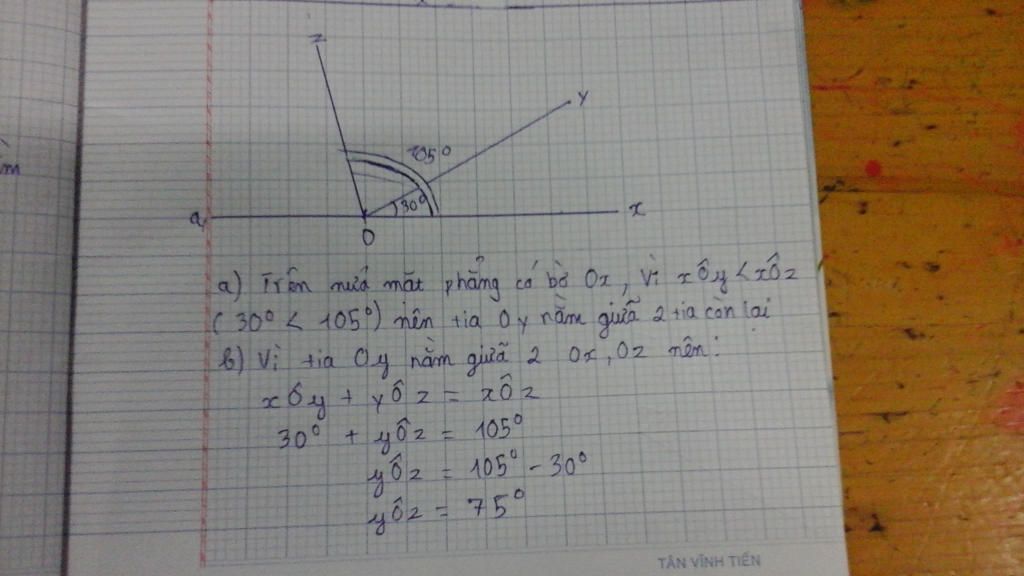 z
y
105°
30°
a
x
O
a) Trên nửa mặt phẳng có bờ Ox, Vì xÔy < xÔz
(30° < 105°) nên tia Oy nằm giữa 2 tia còn lại
b) Vì tia Oy nằm giữa 2 Ox, Oz nên:
xÔy + yÔz = xÔz
30° + yÔz = 105°
yÔz = 105° - 30°
yÔz = 75°
TÂN VĨNH TIẾN